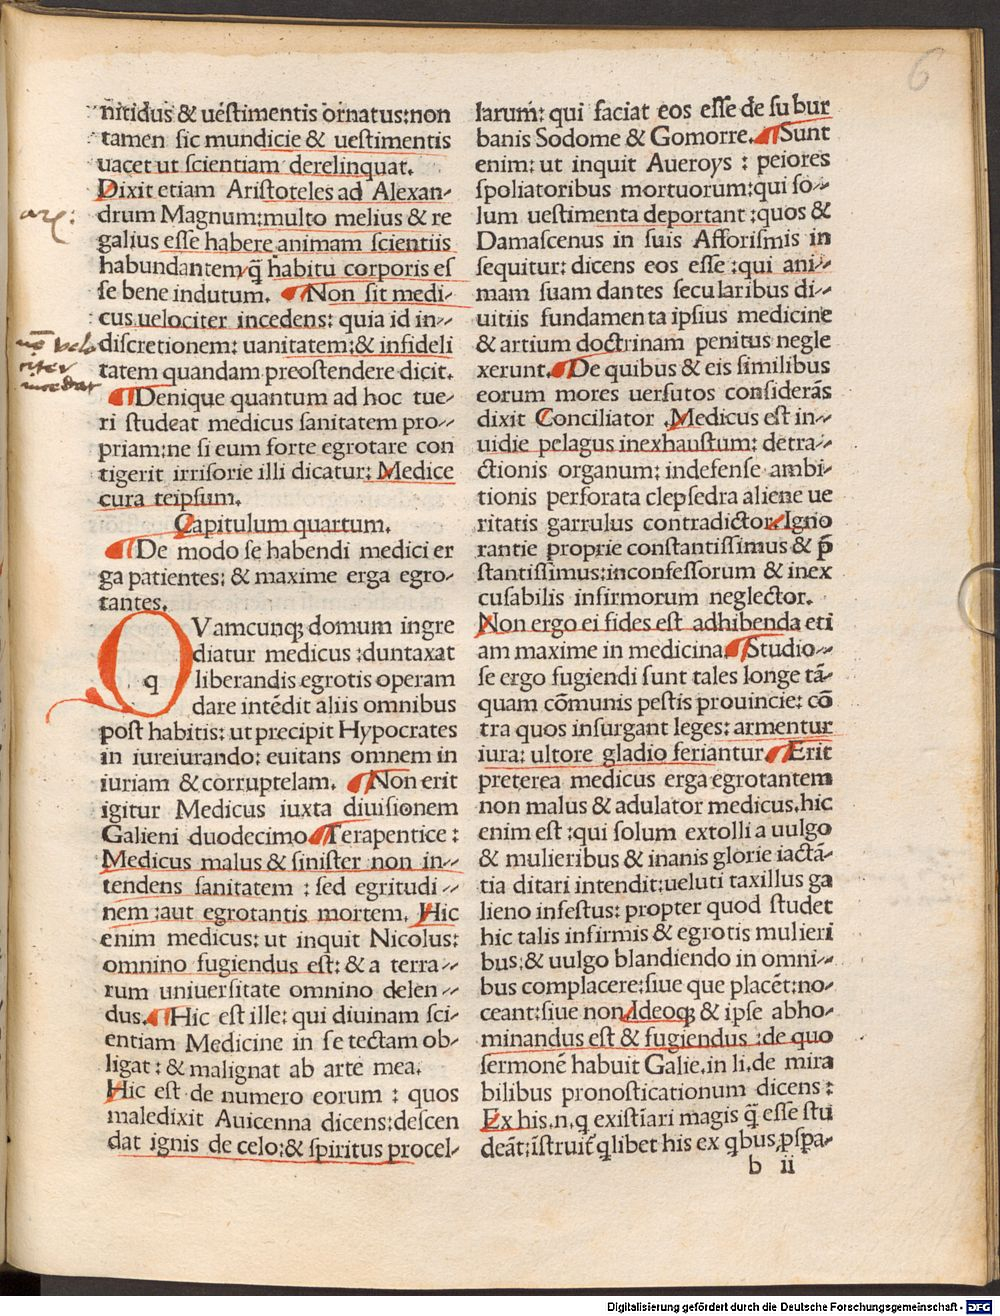 6
nitidus & uestimentis ornatus:non
tamen sic mundicie & uestimentis
uacet ut scientiam derelinquat.
Dixit etiam Aristoteles ad Alexan-
drum Magnum:multo melius & re
galius esse habere animam scientiis
habundantem q̃ habitu corporis es
se bene indutum. ¶ Non sit medi-
cus uelociter incedens: quia id in-
discretionem: uanitatem:& infideli
tatem quandam preostendere dicit.
¶ Denique quantum ad hoc tue-
ri studeat medicus sanitatem pro-
priam:ne si eum forte egrotare con
tigerit irrisorie illi dicatur: Medice
cura teipsum.
Capitulum quartum.
¶ De modo se habendi medici er
ga patientes: & maxime erga egro-
tantes.
q
QVamcunqꝫ domum ingre
diatur medicus :duntaxat
liberandis egrotis operam
dare intẽdit aliis omnibus
post habitis: ut precipit Hypocrates
in iureiurando: euitans omnem in
iuriam & corruptelam. ¶ Non erit
igitur Medicus iuxta diuisionem
Galieni duodecimo ¶ Terapentice :
Medicus malus & sinister non in-
tendens sanitatem : sed egritudi-
nem :aut egrotantis mortem. Hic
enim medicus: ut inquit Nicolus:
omnino fugiendus est: & a terra-
rum uniuersitate omnino delen-
dus. ¶ Hic est ille: qui diuinam sci-
entiam Medicine in se tectam ob-
ligat : & malignat ab arte mea.
Hic est de numero eorum : quos
maledixit Auicenna dicens:descen
dat ignis de celo:& spiritus procel-
larum: qui faciat eos esse de su bur
banis Sodome & Gomorre. ¶ Sunt
enim: ut inquit Aueroys : peiores
spoliatoribus mortuorum:qui so-
lum uestimenta deportant :quos &
Damascenus in suis Afforismis in
sequitur: dicens eos esse :qui ani-
mam suam dantes secularibus di-
uitiis fundamenta ipsius medicine
& artium doctrinam penitus negle
xerunt. ¶ De quibus & eis similibus
eorum mores uersutos considerãs
dixit Conciliator .Medicus est in-
uidie pelagus inexhaustum: detra-
ctionis organum: indefense ambi-
tionis perforata clepsedra aliene ue
ritatis garrulus contradictor. Igno
rantie proprie constantissimus & p̃
stantissimus:inconfessorum & inex
cusabilis infirmorum neglector.
Non ergo ei fides est adhibenda eti
am maxime in medicina. ¶ Studio-
se ergo fugiendi sunt tales longe tã-
quam cõmunis pestis prouincie: cõ
tra quos insurgant leges: armentur
iura: ultore gladio feriantur. ¶ Erit
preterea medicus erga egrotantem
non malus & adulator medicus.hic
enim est :qui solum extolli a uulgo
& mulieribus & inanis glorie iactã-
tia ditari intendit:ueluti taxillus ga
lieno infestus: propter quod studet
hic talis infirmis & egrotis mulieri
bus:& uulgo blandiendo in omni-
bus complacere:siue que placẽt:no-
ceant:siue non. Ideoqꝫ & ipse abho-
minandus est & fugiendus :de quo
sermonẽ habuit Galie.in li.de mira
bilibus pronosticationum dicens :
Ex his.n.q existĩari magis q̃ esse stu
deãt:ĩstruit̃ qlibet his ex qbus,pspa-
b ii
non velo
citer
incedat
Digitalisierung gefördert durch die Deutsche Forschungsgemeinschaft - DFG